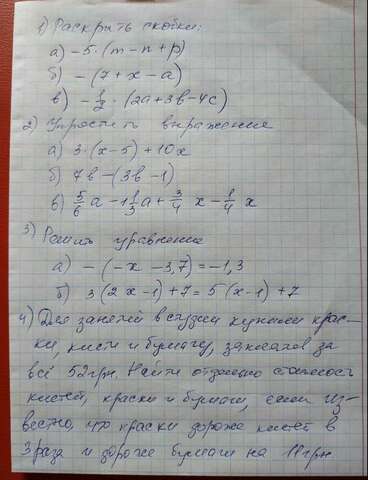 1) Раскрыть скобки:
а) -5·(m-n+p)
б) -(7+x-a)
в) -1/2·(2a+3b-4c)
2) Упростить выражение
а) 3·(x-5)+10x
б) 7b-(3b-1)
в) 5/6 a-1 1/3 a+3/4 x-1/4 x
3) Решить уравнение
а) -(-x-3,7)=-1,3
б) 3(2x-1)+7=5(x-1)+7
4) Для занятий в студии купили крас-
ки, кисти и бумагу, заплатив за
всё 52грн. Найти отдельно стоимость
кистей, краски и бумаги, если из-
вестно, что краски дороже кистей в
3 раза и дороже бумаги на 11грн